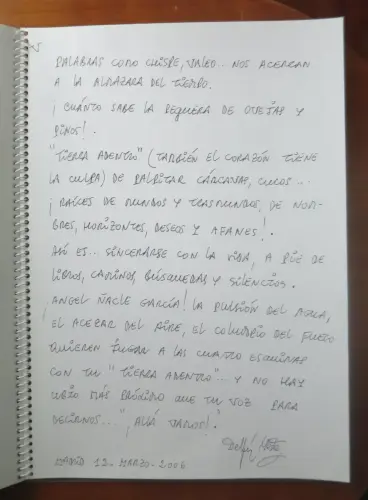 PALABRAS COMO CHISPE, JALEO... NOS ACERCAN
A LA ALMAZARA DEL TIEMPO.
¡ CUÁNTO SABE LA REGUERA DE OVEJAS Y
PINOS!.
"TIERRA ADENTRO" (TAMBIÉN EL CORAZÓN TIENE
LA CULPA) DE PALPITAR CÁRCAVAS, CUCOS...
¡ RAÍCES DE MUNDOS Y TRASMUNDOS, DE NOM-
BRES, HORIZONTES, DESEOS Y AFANES!.
ASÍ ES... SINCERARSE CON LA VIDA, A PIE DE
LIBROS, CAMINOS, BÚSQUEDAS Y SILENCIOS.
¡ ANGEL ÑACLE GARCÍA! LA PULSIÓN DEL AGUA,
EL ACEZAR DEL AIRE, EL COLUMPIO DEL FUEGO
QUIEREN JUGAR A LAS CUATRO ESQUINAS
CON TU "TIERRA ADENTRO"... Y NO HAY
MÁS PRÓXIMO QUE TU VOZ PARA
DECIRNOS... "¡ALLÁ VAMOS!."
MADRID 12-MARZO-2006